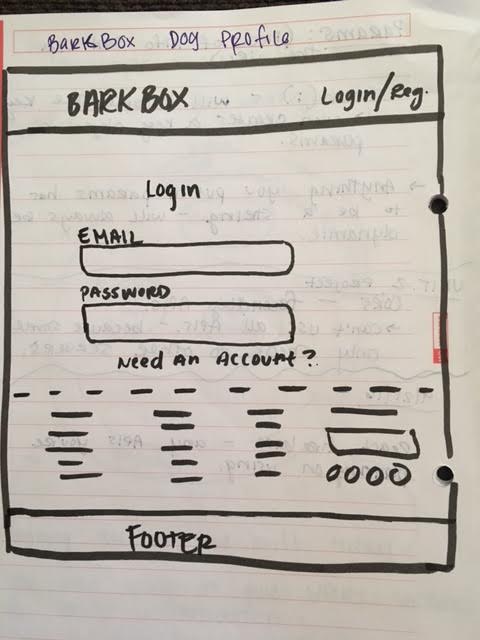 BarkBox Dog Profile
BARK BOX Login/Reg.
Login
EMAIL
PASSWORD
Need An Account?
FOOTER